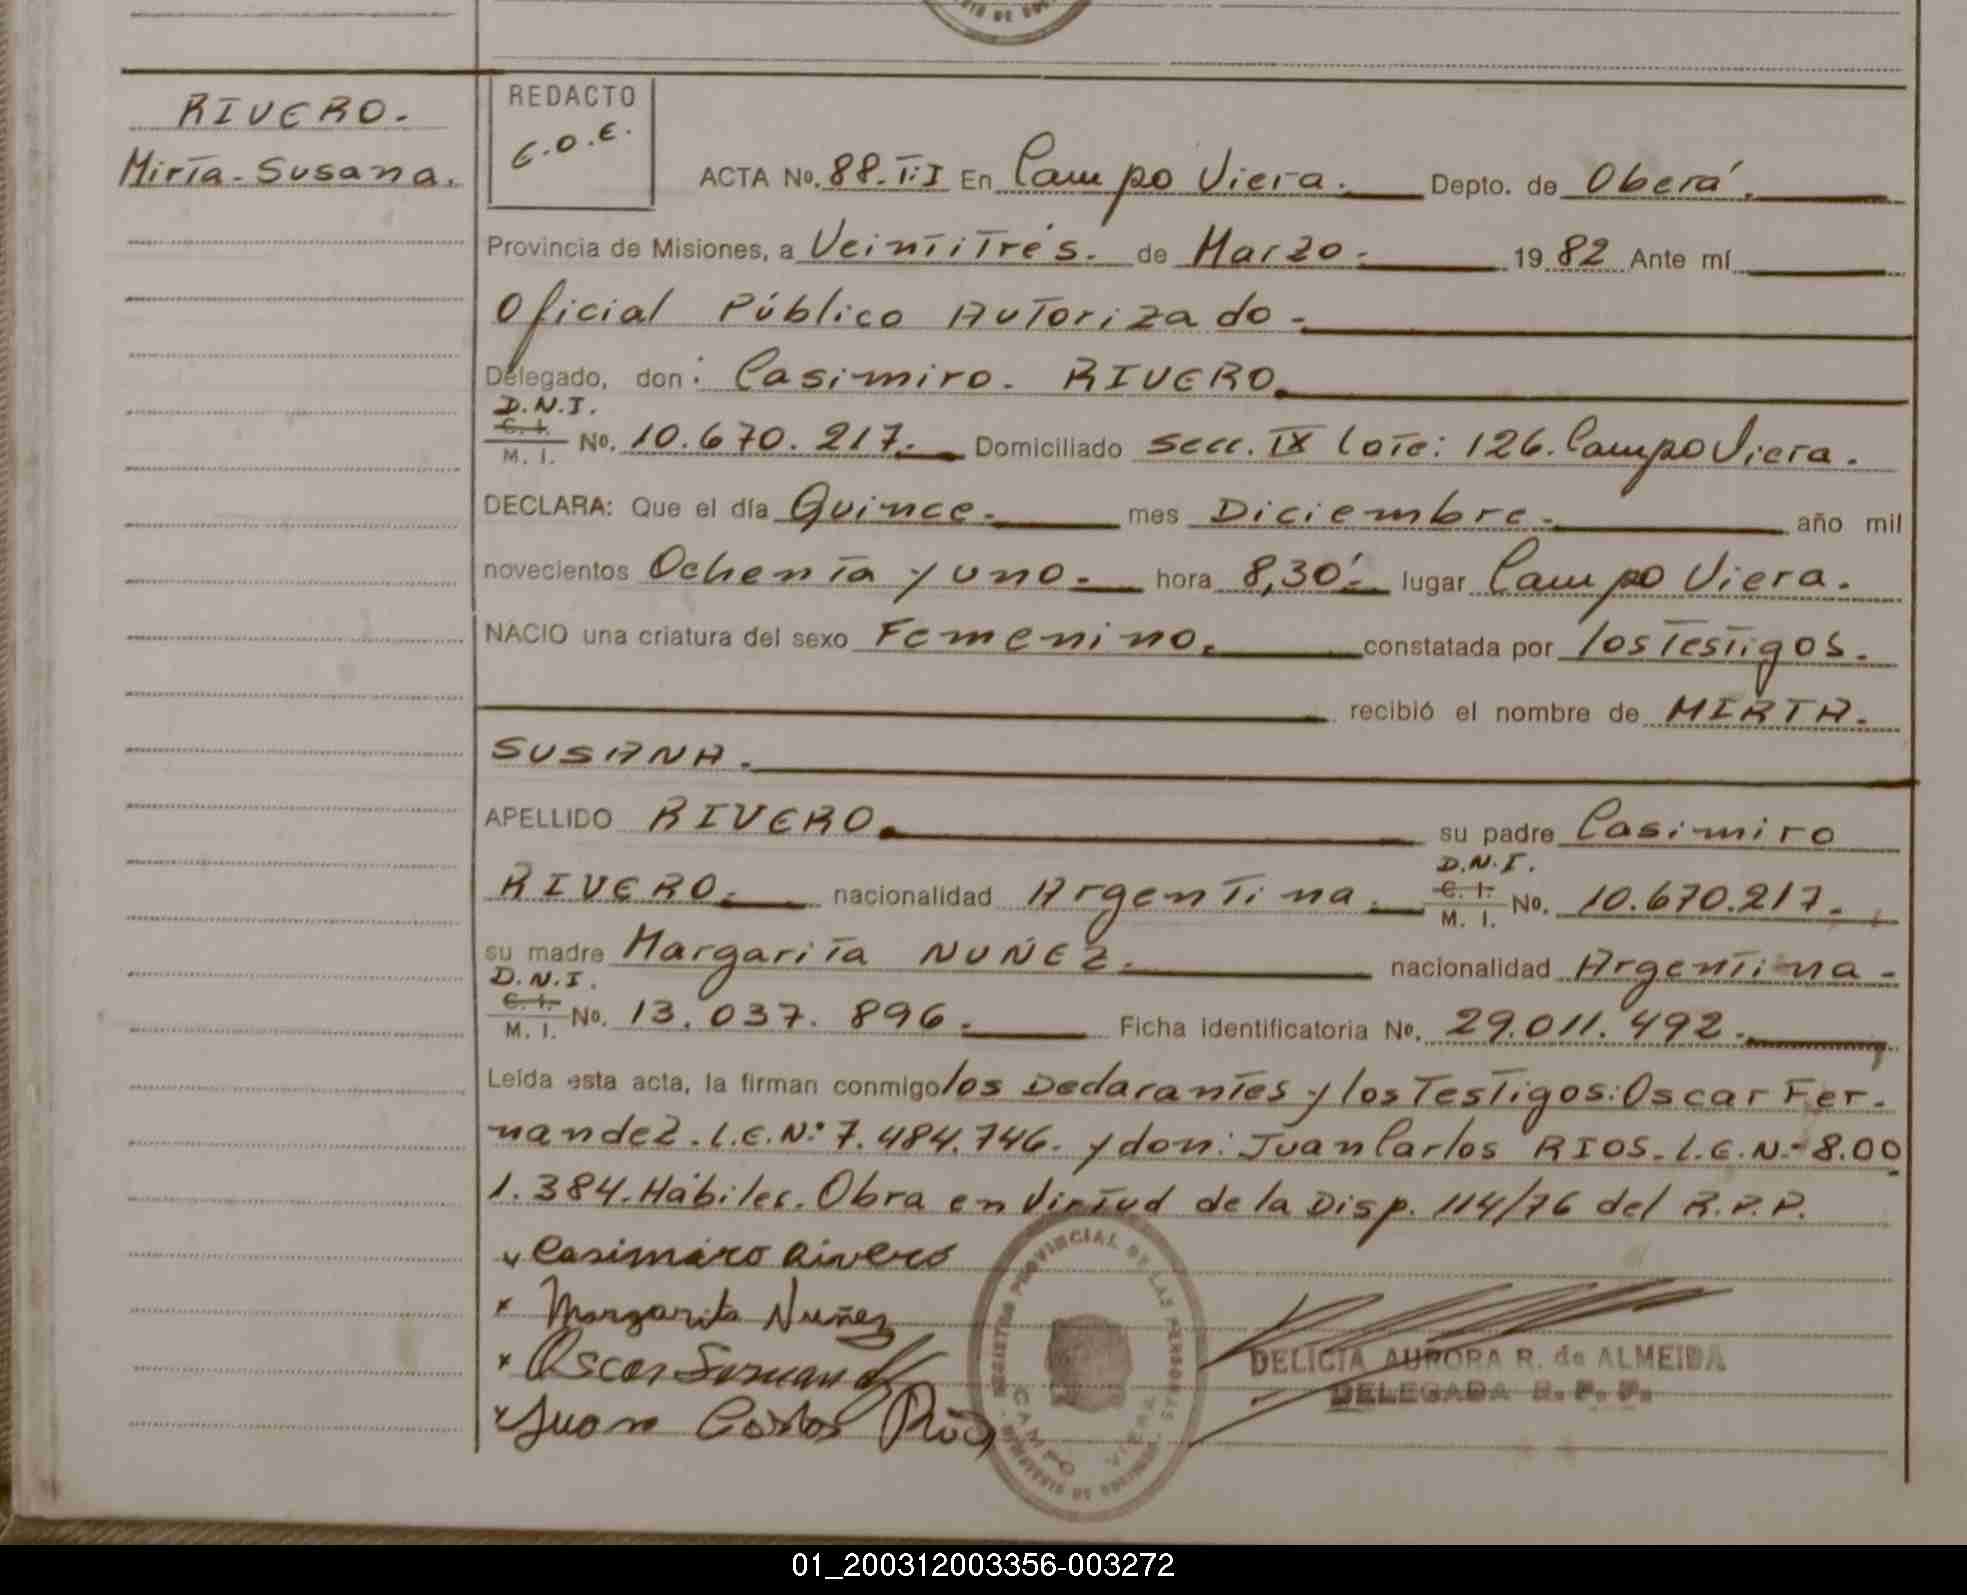 RIVERO.
Mirta-Susana.
REDACTO
C.O.E.
ACTA No. 88.T:I En Campo Viera. Depto. de Oberá.
Provincia de Misiones, a Veintitrés. de Marzo. 1982 Ante mí
Oficial Público Autorizado.
Delegado, don: Casimiro. RIVERO.
D.N.I.
C. I.
M. I. No. 10.670.217. Domiciliado Secc. IX Lote: 126. Campo Viera.
DECLARA: Que el día Quince. mes Diciembre. año mil
novecientos Ochenta y uno. hora 8,30'. lugar Campo Viera.
NACIO una criatura del sexo Femenino. constatada por los Testigos.
recibió el nombre de MIRTA.
SUSANA.
APELLIDO RIVERO. su padre Casimiro
D.N.I.
RIVERO. nacionalidad Argentina. C. I. M. I. No. 10.670.217.
su madre Margarita NUÑEZ. nacionalidad Argentina.
D.N.I.
C. I. M. I. No. 13.037.896. Ficha identificatoria No. 29.011.492.
Leída esta acta, la firman conmigo los Declarantes y los Testigos: Oscar Fer-
nandez. L.E.Nº 7.484.746. y don: Juan Carlos RIOS. L.E.N.º 8.00
1.384. Hábiles. Obra en Virtud de la Disp. 114/76 del R.P.P.
x Casimiro Rivero
x Margarita Nuñez
x Oscar Fernandez
x Juan Carlos Rios
REGISTRO PROVINCIAL DE LAS PERSONAS
CAMPO VIERA
MINISTERIO DE GOBIERNO
DELICIA AURORA R. de ALMEIDA
DELEGADA R. P. P.
01_200312003356-003272